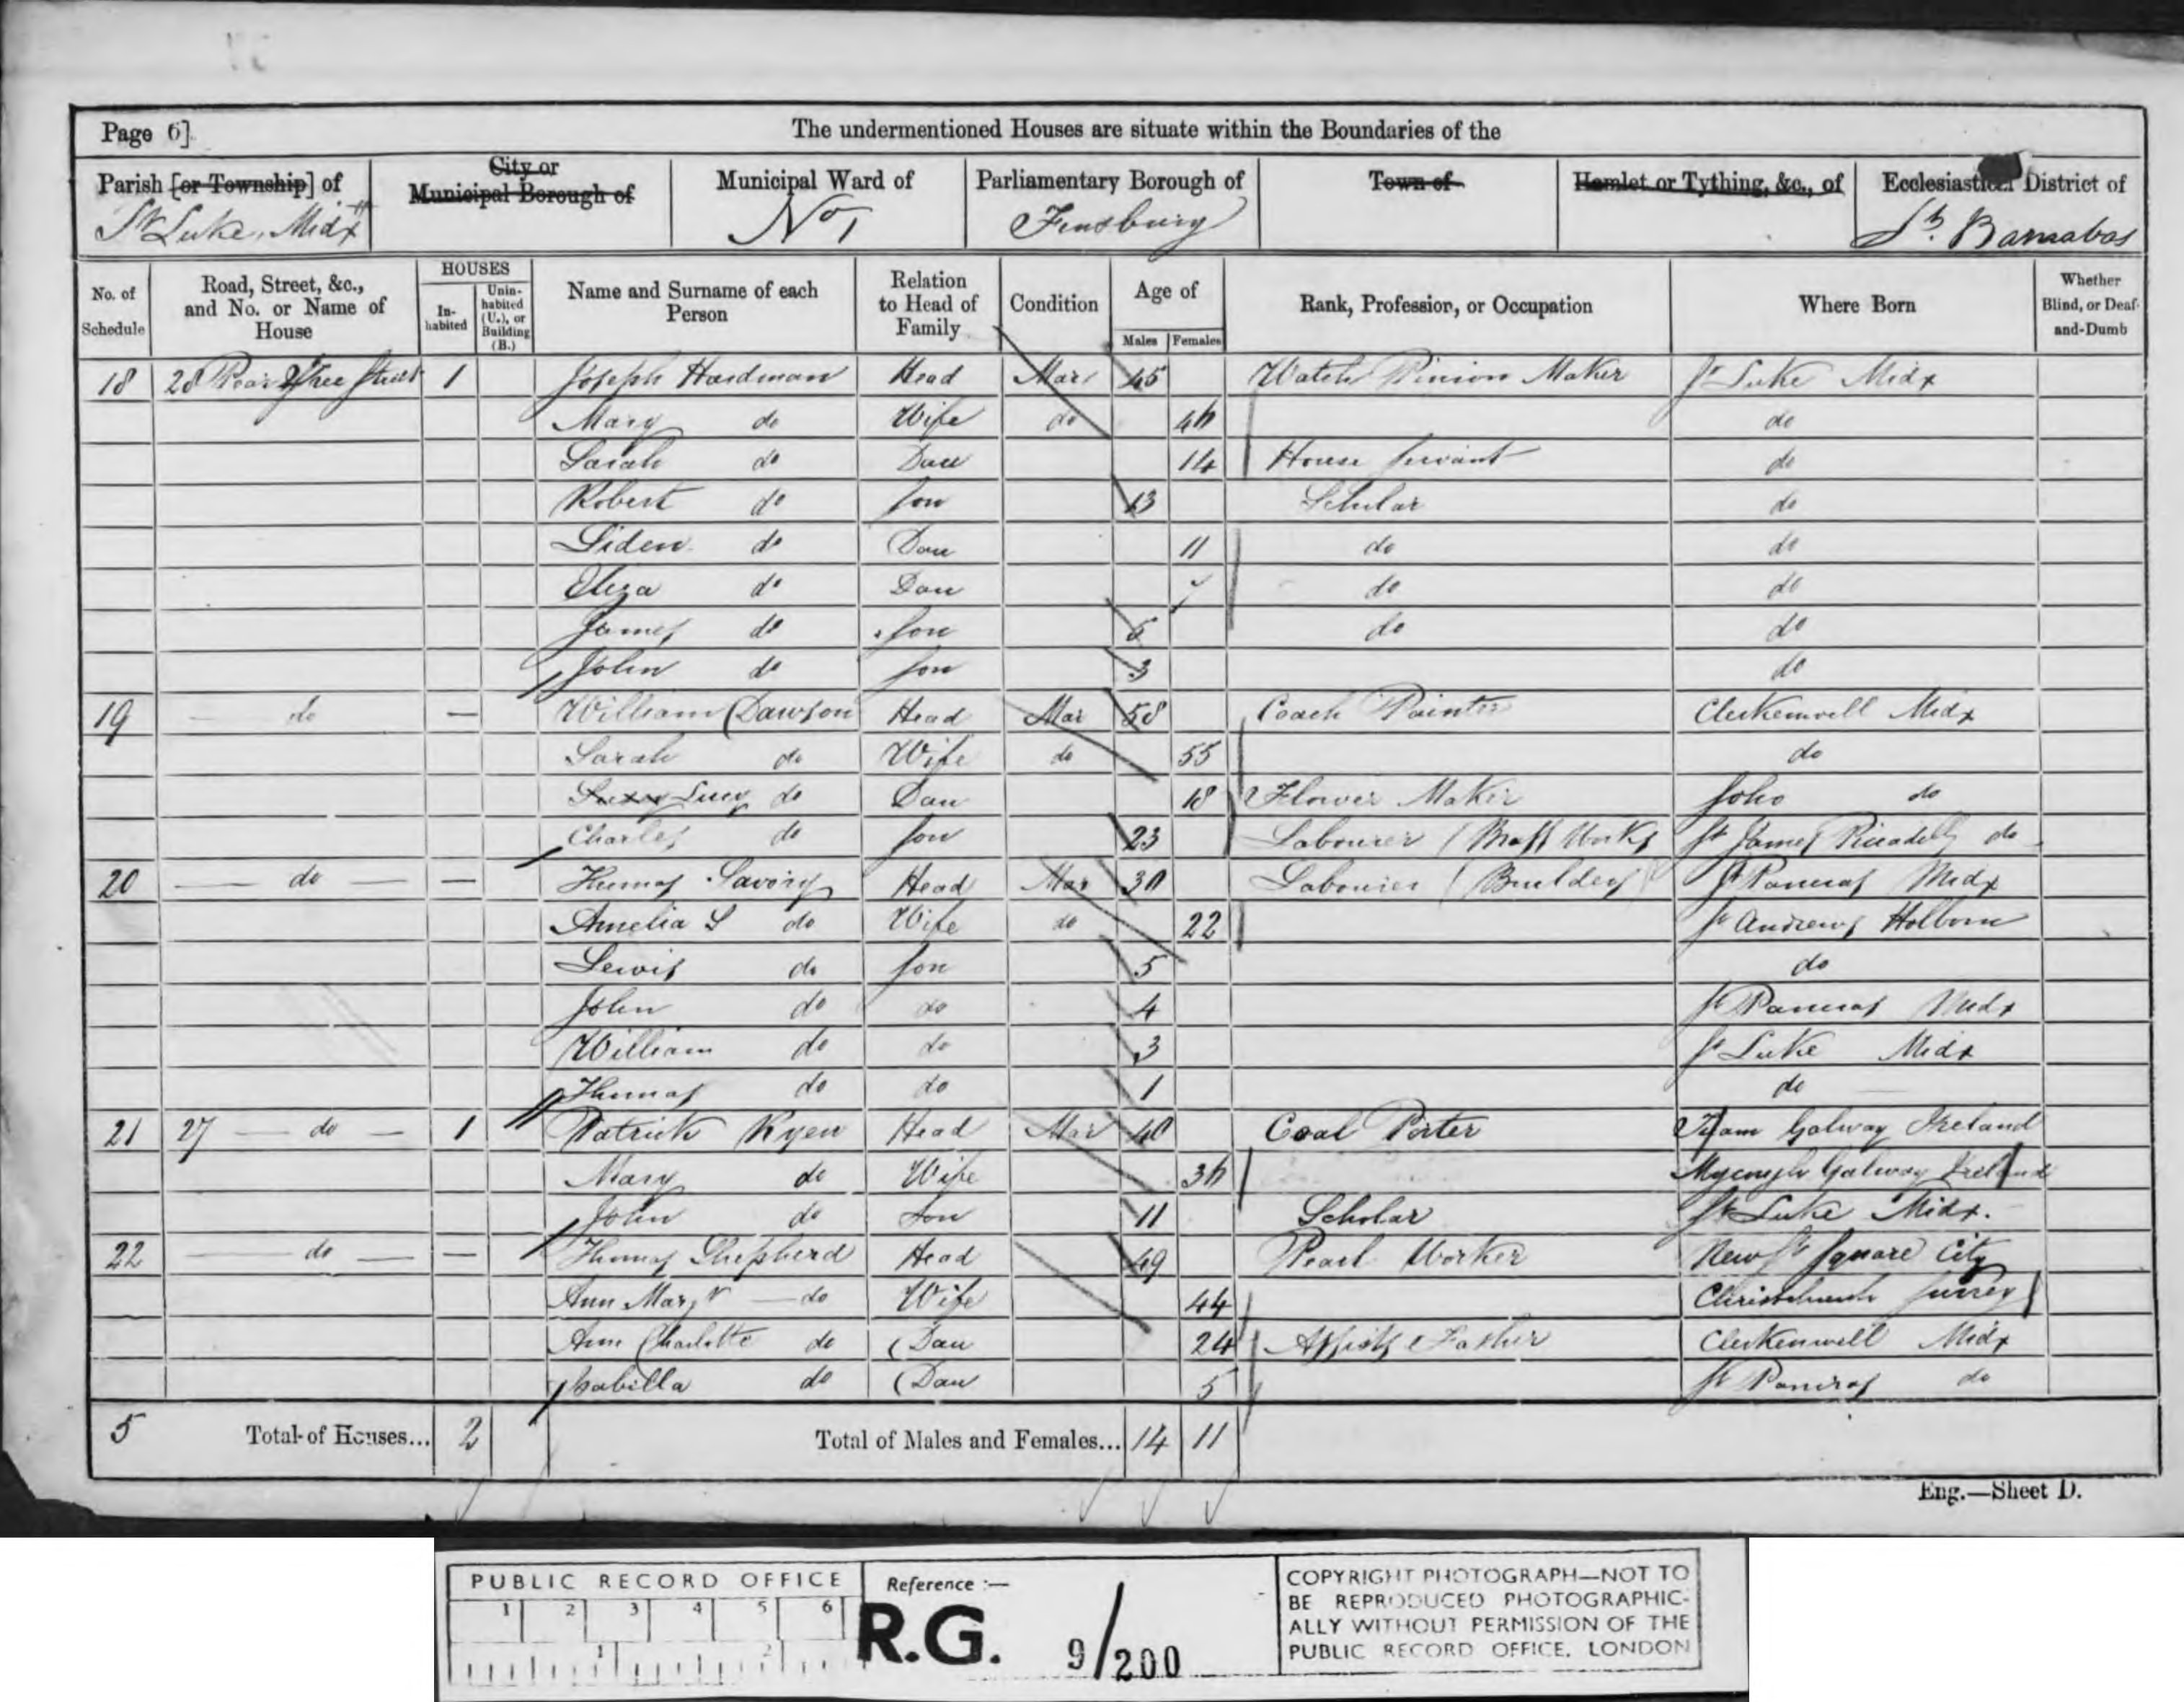 Page 6]
The undermentioned Houses are situate within the Boundaries of the
Parish [or Township] of
City or
Municipal Borough of
Municipal Ward of
Parliamentary Borough of
Town of
Hamlet or Tything, &c., of
Ecclesiastical District of
St Luke, Midx
No 1
Finsbury
St. Barnabas
No. of
Schedule
Road, Street, &c.,
and No. or Name of
House
HOUSES
In-
habited
Unin-
habited
(U.), or
Building
(B.)
Name and Surname of each
Person
Relation
to Head of
Family
Condition
Age of
Males
Females
Rank, Profession, or Occupation
Where Born
Whether
Blind, or Deaf-
and-Dumb
18 28 Pear Tree Street 1 Joseph Hardman Head Mar 45 Watch Pinion Maker St Luke Midx
Mary do Wife do do
Sarah do Dau 14 House Servant do
Robert do Son 13 Schular do
Liden do Dau 11 do do
Eliza do Dau do do
James do Son 5 do do
John do Son 3 do
19 — do — William Dawson Head Mar 58 Coach Painter Clerkenwell Midx
Sarah do Wife do 55 do
Lucy do Dau 18 Flower Maker Soho do
Charles do Son 23 Labourer (Brass Works St James Piccadilly do
20 — do — — Thomas Savory Head Mar 30 Labourer (Builders) St Pancras Midx
Amelia S do Wife do 22 St Andrews Holborn
Lewis do Son 5 do
John do do 4 St Pancras Midx
William do do 3 St Luke Midx
Thomas do do 1 do
21 27 — do — 1 Patrick Ryen Head Mar 40 Coal Porter Tuam Galway Ireland
Mary do Wife Galway Ireland
John do Son 11 Scholar St Luke Midx.
22 — do — — Thomas Shepherd Head 49 Pearl Worker New St Square City
Ann Margt — do Wife 44 Christchurch Surrey
Ann Charlotte do Dau 24 Assists Father Clerkenwell Midx
Isabilla do Dau 5 St Pancras do
5 Total of Houses... 2 Total of Males and Females... 14 11
Eng.—Sheet D.
PUBLIC RECORD OFFICE
1 2 3 4 5 6
1 2
Reference :—
R.G. 9/200
COPYRIGHT PHOTOGRAPH—NOT TO
BE REPRODUCED PHOTOGRAPHIC-
ALLY WITHOUT PERMISSION OF THE
PUBLIC RECORD OFFICE, LONDON